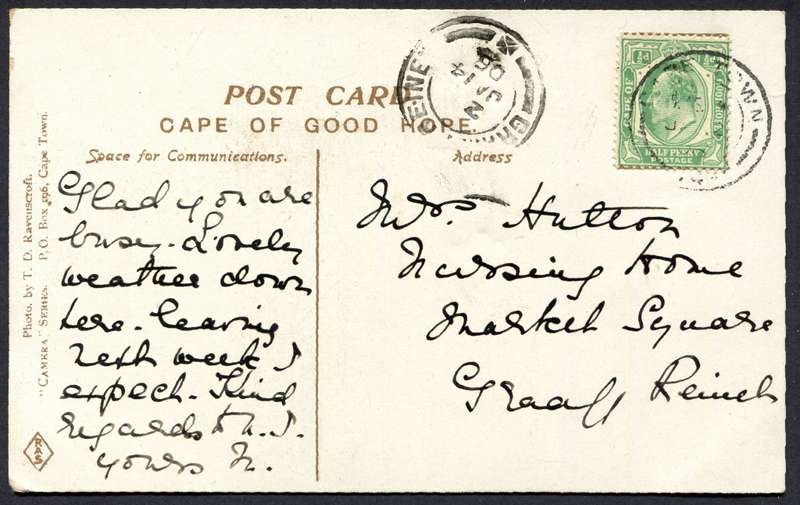 POST CARD
CAPE OF GOOD HOPE
Space for Communications.
Address
Glad you are
busy. Lovely
weather down
here. leaving
next week I
expect. Kind
regards to N. J.
yours N.
Mrs. Hutton
Nursing Home
Market Square
Graaff Reinet
Photo. by T. D. Ravenscroft.
"CAMERA" SERIES. P.O. Box 296, Cape Town.
RAS
JA 14
06
TOWN
½d
CAPE OF GOOD HOPE
HALF PENNY
POSTAGE